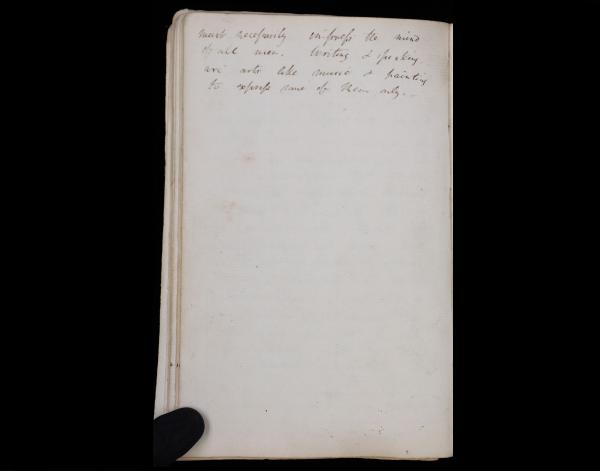 must necessarily impress the mind
of all men. Writing & speaking
are arts like music & painting
to express some of them only.